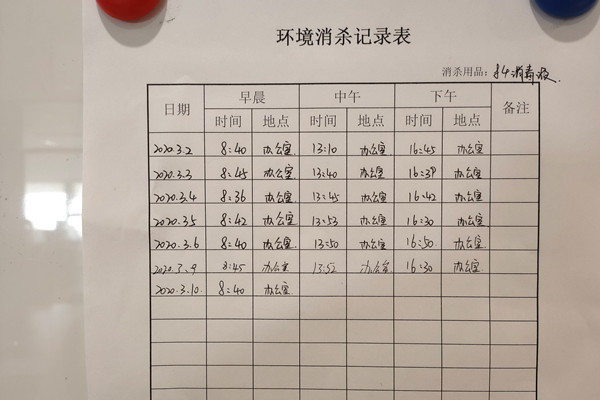 环境消杀记录表
消杀用品：84消毒液
日期 早晨 中午 下午 备注
时间 地点 时间 地点 时间 地点
2020.3.2 8:40 办公室 13:10 办公室 16:45 办公室
2020.3.3 8:45 办公室 13:40 办公室 16:38 办公室
2020.3.4 8:36 办公室 13:45 办公室 16:42 办公室
2020.3.5 8:42 办公室 13:53 办公室 16:30 办公室
2020.3.6 8:40 办公室 13:50 办公室 16:50 办公室
2020.3.9 8:45 办公室 13:52 办公室 16:30 办公室
2020.3.10 8:40 办公室